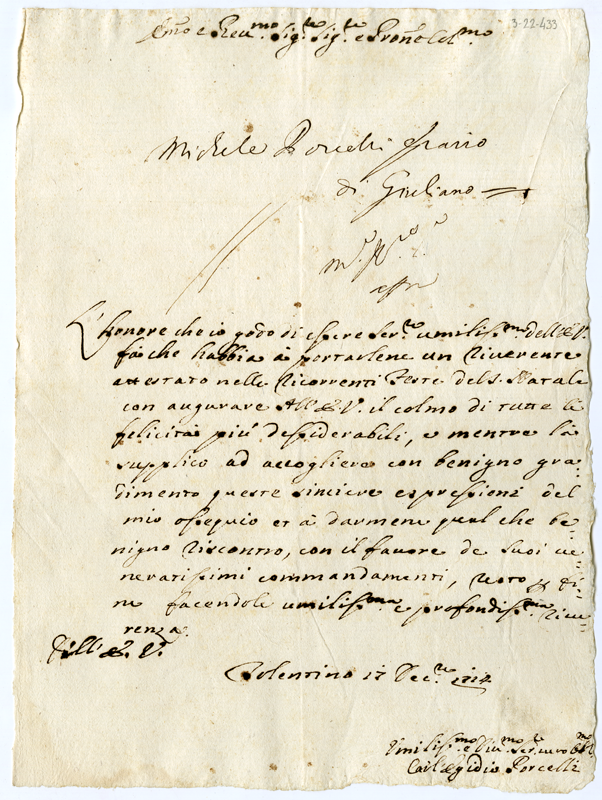 3-22-433
Em̃o e Rev.mo Sig.re Sig.re e Pron̄e Col.mo
Michele Porcelli
di Giuliano
L'honore che io godo di essere Ser.re umiliss.mo dell'E.V.
fà che habbia à portarlene un riverente
attestato nelle ricorrenti Feste del S. Natale
con augurare All'E.V. il colmo di tutte le
felicità più desiderabili, e mentre la
supplico ad accogliere con benigno gra-
dimento queste sincere espressioni del
mio ossequio et à darmene qual che be-
nigno riscontro, con il favore de suoi ve-
neratissimi commandamenti, resto per fi-
ne facendole umiliss.ma e profondiss.ma rive-
renza.
Dell'E. V.
Tolentino 17 Dec.re 1714
Umiliss.mo e Div.mo Ser.re vero obl.mo
Carl'Egidio Porcelli